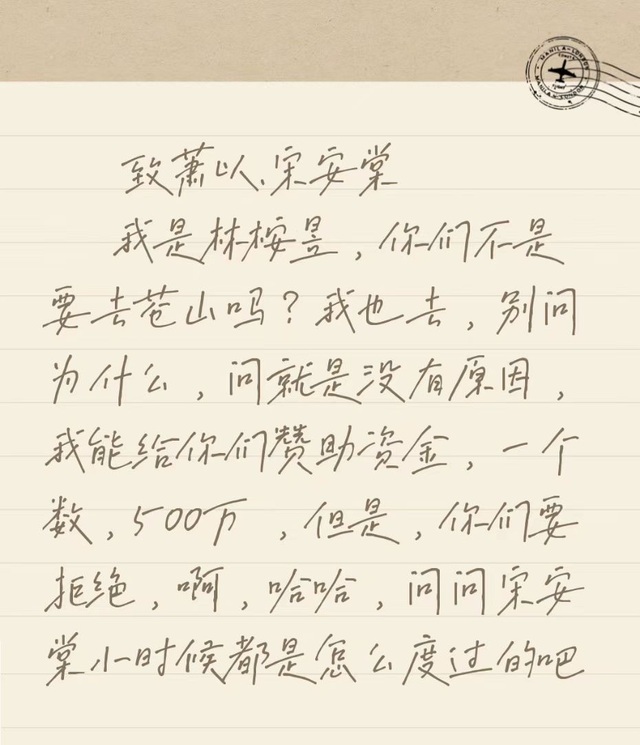 致萧以、宋安棠
我是林桉昱，你们不是
要去苍山吗？我也去，别问
为什么，问就是没有原因，
我能给你们赞助资金，一个
数，500万，但是，你们要
拒绝，啊，哈哈，问问宋安
棠小时候都是怎么度过的吧